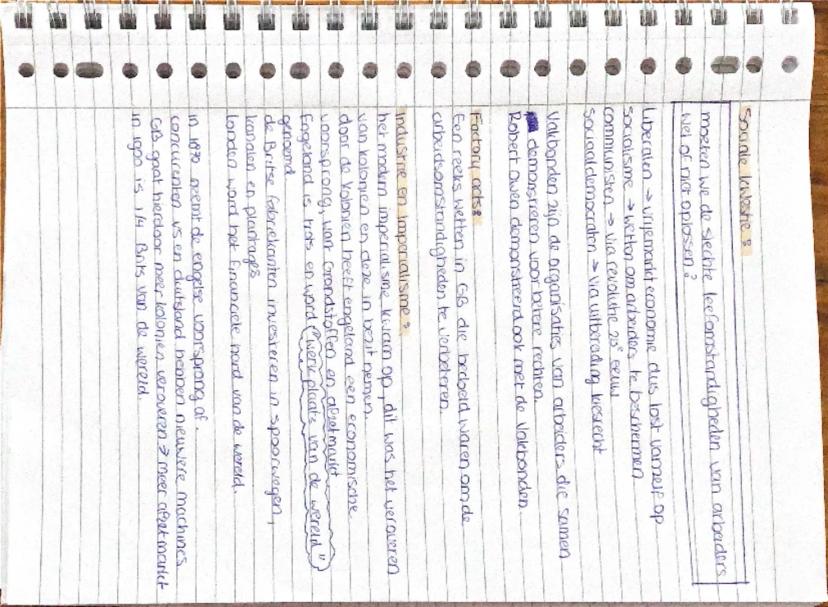 Sociale kwestie :
moeten we de slechte leefomstandigheden van arbeiders
wel of niet oplossen?
Liberalen → vrijemarkteconomie dus lost vanzelf op
socialisme → wetten om arbeiders te beschermen
communisten → via revolutie 20e eeuw
sociaaldemocraten → via uitbreiding kiesrecht
Vakbonden zijn de organisaties van arbeiders die samen
demonstreren voor betere rechten.
Robert Owen demonstreerd ook met de vakbonden.
Factory acts :
Een reeks wetten in GB die bedoeld waren om de
arbeidsomstandigheden te verbeteren.
Industrie en Imperialisme :
het modern imperialisme kwam op, dit was het veroveren
van kolonien en deze in bezit nemen.
door de kolonien heeft engeland een economische
voorsprong, want grondstoffen en afzetmarkt
Engeland is trots en word ("werkplaats van de wereld")
genoemd
de Britse fabriekanten investeren in spoorwegen,
kanalen en plantages
londen word het financiele hard van de wereld.
in 1870 neemt de engelse voorsprong af.
concurenten vs en duitsland hebben nieuwere machines
GB gaat hierdoor meer kolonien veroveren → meer afzetmarkt
in 1900 is 1/4 Brits van de wereld.